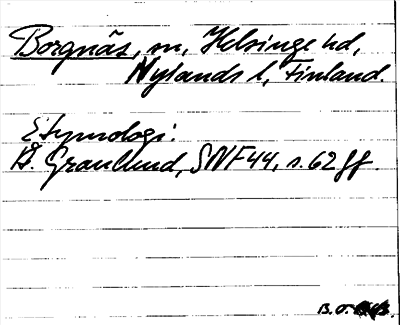 Borgnäs, sn, Helsinge hd,
Nylands l, Finland.
Etymologi.
Å. Granlund, SNF 44, s. 62 ff.
B. O.